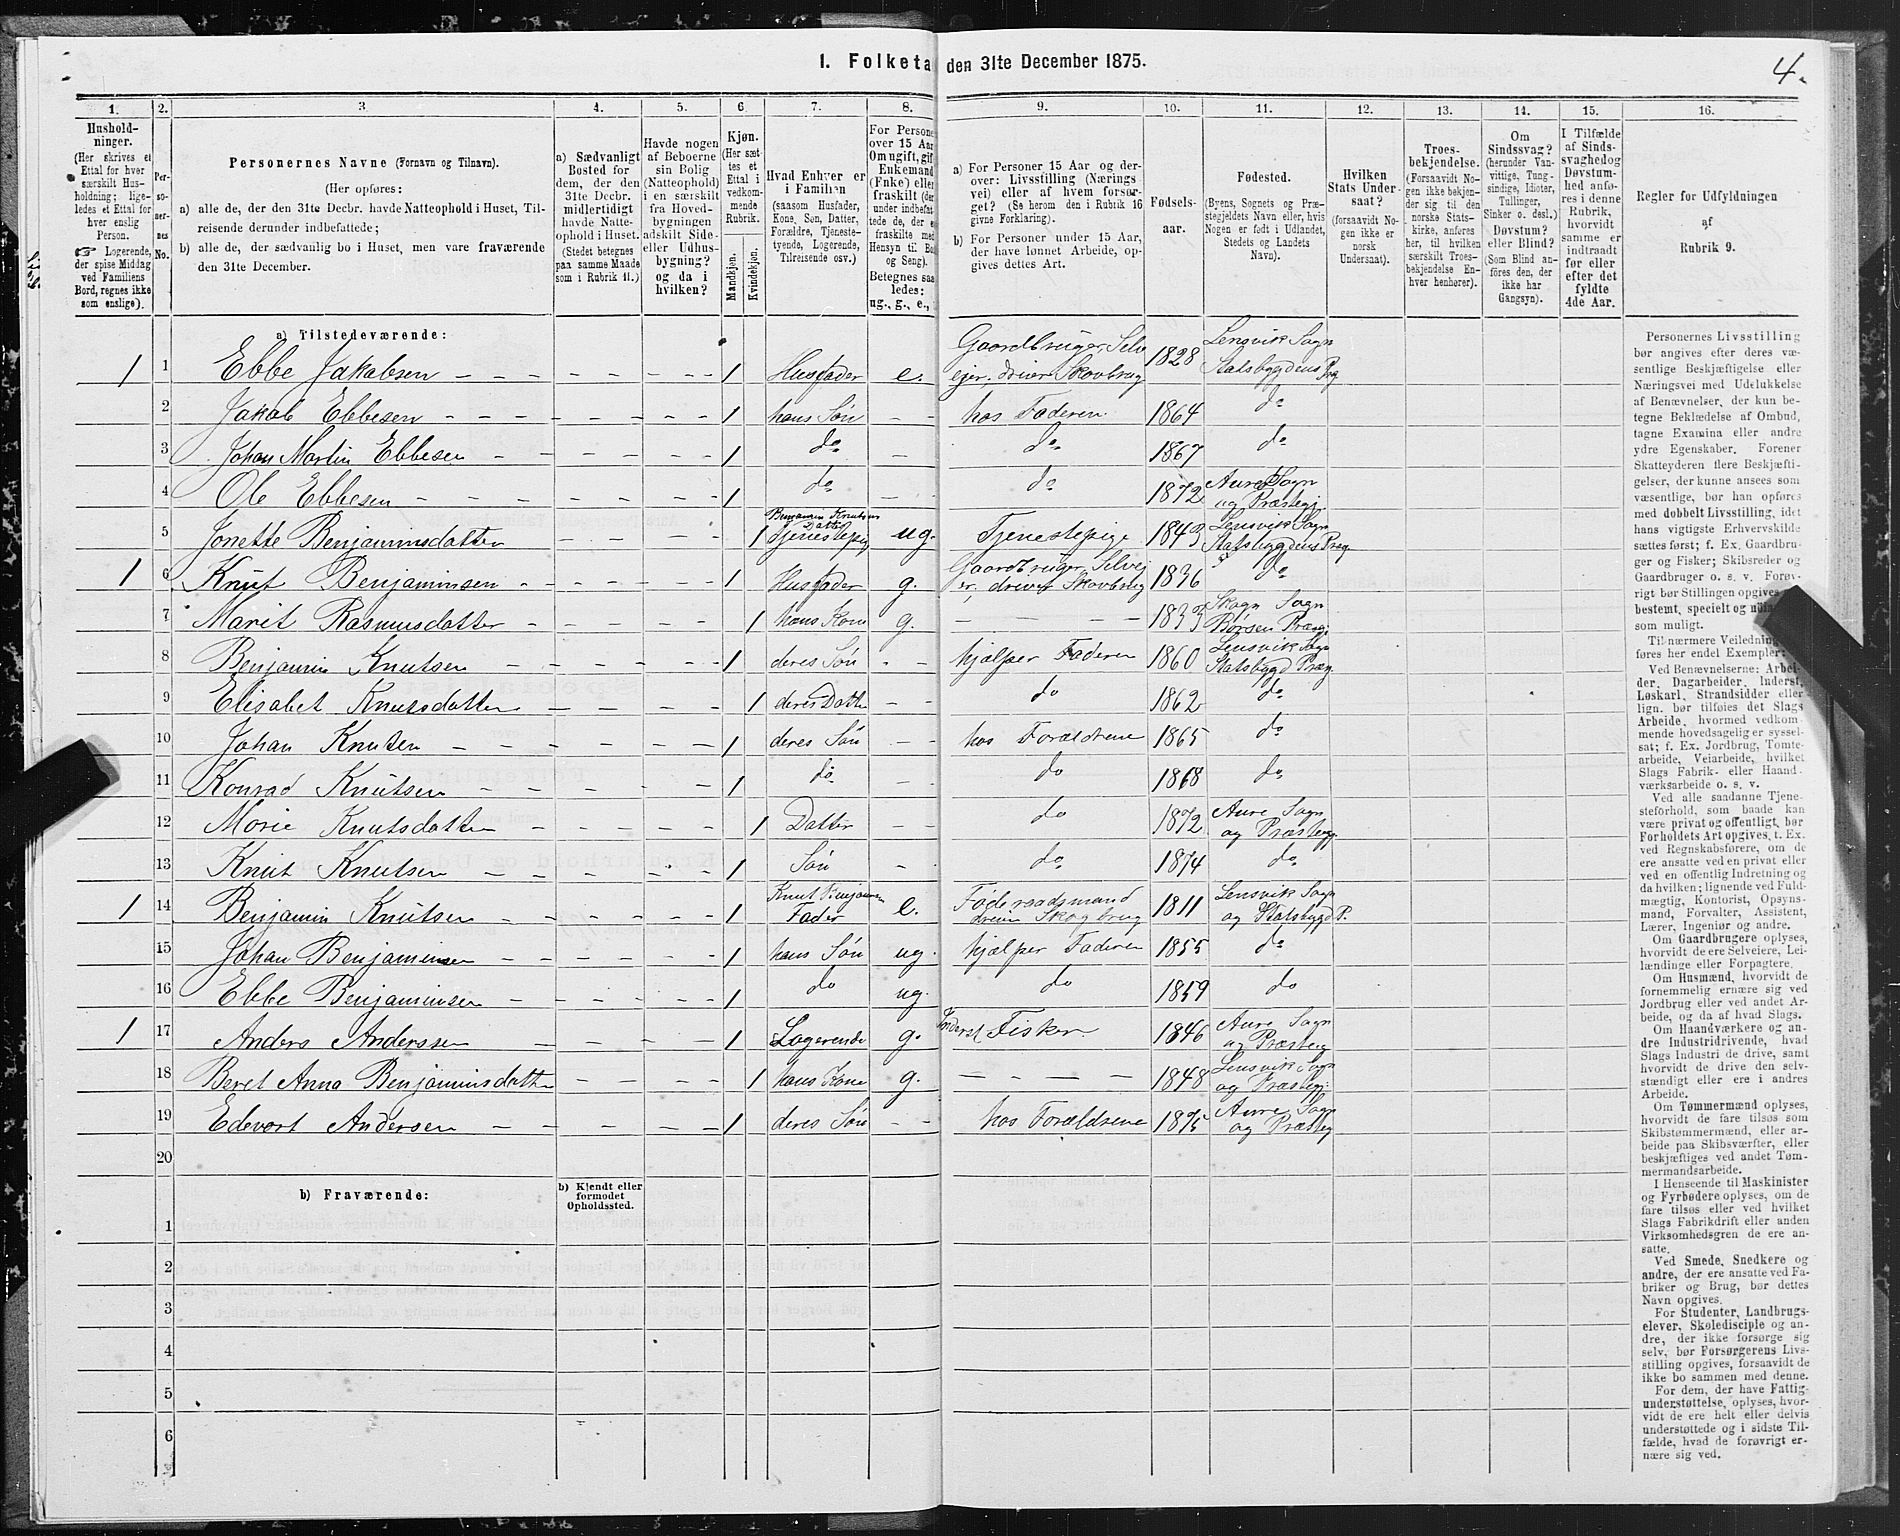 1. Folketa den 31te December 1875.
4.
1. 2. 3. 4. 5. 6. 7. 8. 9. 10. 11. 12. 13. 14. 15. 16.
Hushold-
ninger.
(Her skrives et
Ettal for hver
særskilt Hus-
holdning; lige-
ledes et Ettal for
hver enslig
Person.
☞ Logerende,
der spise Middag
ved Familiens
Bord, regnes ikke
som enslige).
Per-
so-
ner-
nes
No.
Personernes Navne (Fornavn og Tilnavn).
(Her opføres:
a) alle de, der den 31te Decbr. havde Natteophold i Huset, Til-
reisende derunder indbefattede;
b) alle de, der sædvanlig bo i Huset, men vare fraværende
den 31te December.
a) Sædvanligt
Bosted for
dem, der den
31te Decbr.
midlertidigt
havde Natte-
ophold i Huset.
(Stedet betegnes
paa samme Maade
som i Rubrik 11.)
Havde nogen
af Beboerne
sin Bolig
(Natteophold)
i en særskilt
fra Hoved-
bygningen
adskilt Side-
eller Udhus-
bygning?
og da i
hvilken?
Kjøn.
(Her sæt-
tes et
Ettal i
vedkom-
mende
Rubrik.
Mandkjøn.
Kvindekjøn.
Hvad Enhver er
i Familien
(saasom Husfader,
Kone, Søn, Datter,
Forældre, Tjeneste-
tyende, Logerende,
Tilreisende osv.)
For Persone
over 15 Aar
Om ugift, gif
Enkemand
(Fnke) elle
fraskilt (der
under indbefat-
tede de, der e
fraskilte med
Hensyn til Bo
og Seng).
Betegnes saa
ledes:
ug., g., e.,
a) For Personer 15 Aar og der-
over: Livsstilling (Nærings
vei) eller af hvem forsør-
get? (Se herom den i Rubrik 16
givne Forklaring).
b) For Personer under 15 Aar,
der have lønnet Arbeide, op-
gives dettes Art.
Fødsels-
aar.
Fødested.
(Byens, Sognets og Præ-
stegjeldets Navn eller, hvis
Nogen er født i Udlandet,
Stedets og Landets
Navn).
Hvilken
Stats Under-
saat?
(forsaavidt No-
gen ikke er
norsk
Undersaat).
Troes-
bekjendelse.
(Forsaavidt No-
gen ikke bekjen-
der sig til den
norske Stats-
kirke, anføres
her, til hvilken
særskilt Troes-
bekjendelse En-
hver henhører).
Om
Sindssvag?
(herunder Van-
vittige, Tung-
sindige, Idioter,
Tullinger,
Sinker o. desl.)
Døvstum?
eller Blind?
(Som Blind an-
føres den, der
ikke har
Gangsyn).
I Tilfælde
af Sinds-
svaghed og
Døvstum-
hed anfø-
res i denne
Rubrik,
hvorvidt
samme er
indtraadt
før eller
efter det
fyldte
4de Aar.
Regler for Udfyldningen
af
Rubrik 9.
a) Tilstedeværende:
1 1 Ebbe Jakobsen 1 Husfader e. Gaardbruger, Selv 1828 Lensvik Sogn
ejer, driver Skovbrug Statsbygdens Prg
2 Jakob Ebbesen 1 hans Søn hos Faderen 1864 do
3 Johan Martin Ebbesen 1 do do 1867 do
4 Ole Ebbesen 1 do do 1872 Aure Sogn
og Præstegj
5 Jonette Benjaminsdatter 1 Benjamin Knutsens Datter Tjenestepig ug. Tjenestepige 1843 Lensvik Sogn
Statsbygdens Præg
1 6 Knut Benjaminsen 1 Husfader g. Gaardbruger, Selvej 1836 do
er, driver Skovbrug
7 Marit Rasmusdatter hans Kone g. 1833 Skogn Sogn
Børsen Præg.
8 Benjamin Knutsen 1 deres Søn hjælper Faderen 1860 Lensvik Sogn
Statsbygd Præg
9 Elisabet Knutsdatter 1 deres Datter do 1862 do
10 Johan Knutsen 1 deres Søn hos Forældrene 1865 do
11 Konrad Knutsen 1 do do 1868 do
12 Marie Knutsdatter 1 Datter do 1872 Aure Sogn
og Præstegj.
13 Knut Knutsen 1 Søn do 1874 do
1 14 Benjamin Knutsen 1 Knut Benjamin Fader e. Føderaadsmand 1811 Lensvik Sogn
driver Skogbrug og Statsbygd P.
15 Johan Benjaminsen 1 hans Søn ug. hjælper Faderen 1855 do
16 Ebbe Benjaminsen 1 do ug. do 1859 do
1 17 Anders Anderssen 1 Logerende g. Inderst Fisker 1846 Aure Sogn
og Præsteg
18 Beret Anna Benjaminsdatter 1 hans Kone g. 1848 Lensvik Sogn
og Præstegj.
19 Edevart Andersen 1 deres Søn hos Forældrene 1875 Aure Sogn
og Præsteg
20
b) Fraværende:
b) Kjendt eller
formodet
Opholdssted.
1
2
3
4
5
6
Personernes Livsstilling
bør angives efter deres væ-
sentlige Beskjæftigelse eller
Næringsvei med Udelukkelse
af Benævnelser, der kun be-
tegne Beklædelse af Ombud,
tagne Examina eller andre
ydre Egenskaber. Forener
Skatteyderen flere Beskjæfti-
gelser, der kunne ansees som
væsentlige, bør han opføres
med dobbelt Livsstilling, idet
hans vigtigste Erhvervskilde
sættes først; f. Ex. Gaardbru-
ger og Fisker; Skibsreder og
Gaardbruger o. s. v. Forøv-
rigt bør Stillingen opgives
bestemt, specielt og nøia
som muligt.
Til nærmere Veiledning
føres her endel Exempler:
Ved Benævnelserne: Arbei-
der, Dagarbeider, Inderst,
Løskarl, Strandsidder eller
lign. bør tilføies det Slags
Arbeide, hvormed vedkom-
mende hovedsagelig er syssel-
sat; f. Ex. Jordbrug, Tomte-
arbeide, Veiarbeide, hvilket
Slags Fabrik- eller Haand-
værksarbeide o. s. v.
Ved alle saadanne Tjene-
steforhold, som baade kan
være privat og offentligt, bør
Forholdets Art opgives, t. Ex.
ved Regnskabsførere, om de
ere ansatte ved en privat eller
ved en offentlig Indretning og
da hvilken; lignende ved Fuld-
mægtig, Kontorist, Opsyns-
mand, Forvalter, Assistent,
Lærer, Ingeniør og andre.
Om Gaardbrugere oplyses,
hvorvidt de ere Selveiere, Lei-
lændinge eller Forpagtere.
Om Husmænd, hvorvidt de
fornemmelig ernære sig ved
Jordbrug eller ved andet Ar-
beide, og da af hvad Slags.
Om Haandværkere og an-
dre Industridrivende, hvad
Slags Industri de drive, samt
hvorvidt de drive den selv-
stændigt eller ere i andres
Arbeide.
Om Tømmermænd oplyses,
hvorvidt de fare tilsøs som
Skibstømmermænd, eller ar-
beide paa Skibsværfter, eller
beskjæftiges ved andet Tøm-
mermandsarbeide.
I Henseende til Maskinister
og Fyrbødere oplyses, om de
fare tilsøs eller ved hvilket
Slags Fabrikdrift eller anden
Virksomhedsgren de ere an-
satte.
Ved Smede, Snedkere og
andre, der ere ansatte ved Fa-
briker og Brug, bør dettes
Navn opgives.
For Studenter, Landbrugs-
elever, Skoledisciple og an-
dre, der ikke forsørge sig
selv, bør Forsørgerens Livs-
stilling opgives, forsaavidt de
ikke bo sammen med denne.
For dem, der have Fattig-
understøttelse, oplyses, hvor-
vidt de ere helt eller delvis
understøttede og i sidste Til-
fælde, hvad de forøvrigt er-
nære sig ved.